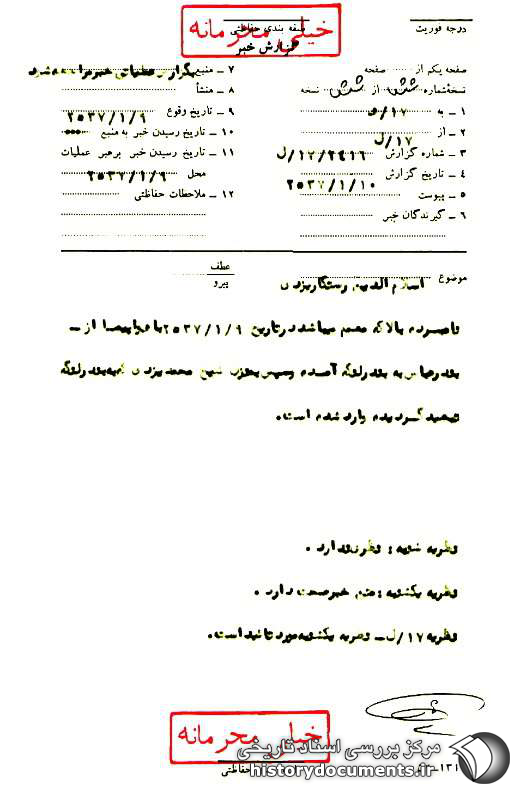 درجه فوریت
خیلی محرمانه
طبقه بندی حفاظتی
گزارش خبر
صفحه یکم از صفحه
نسخه شماره شش از شش نسخه
۱ ـ به ۱۷/و
۲ ـ از ۱۷/ل
۳ ـ شماره گزارش
۴ ـ تاریخ گزارش ۲۵۳۷/۱/۱۰
۵ ـ پیوست
۶ ـ گیرندگان خبر
۷ ـ منبع
۸ ـ منشأ
۹ ـ تاریخ وقوع ۲۵۳۷/۱/۹
۱۰ ـ تاریخ رسیدن خبر به منبع
۱۱ ـ تاریخ رسیدن خبر برهبر عملیات
محل ۲۵۳۷/۱/۹
۱۲ ـ ملاحظات حفاظتی
موضوع
عطف
پیرو
نامبرده بالا که معمم میباشد در تاریخ ۲۵۳۷/۱/۹ با هواپیما از ـ
بندرعباس به بندرلنگه آمده و سپس بمنزل شیخ محمد یزدی که به بندرلنگه
تبعید گردیده وارد شده است.
نظریه شنبه : نظری ندارد .
نظریه یکشنبه : خبر صحت دارد .
نظریه ۱۷/ل ـ نظریه یکشنبه مورد تائید است.
خیلی محرمانه
حفاظتی
مرکز بررسی اسناد تاریخی
historydocuments.ir